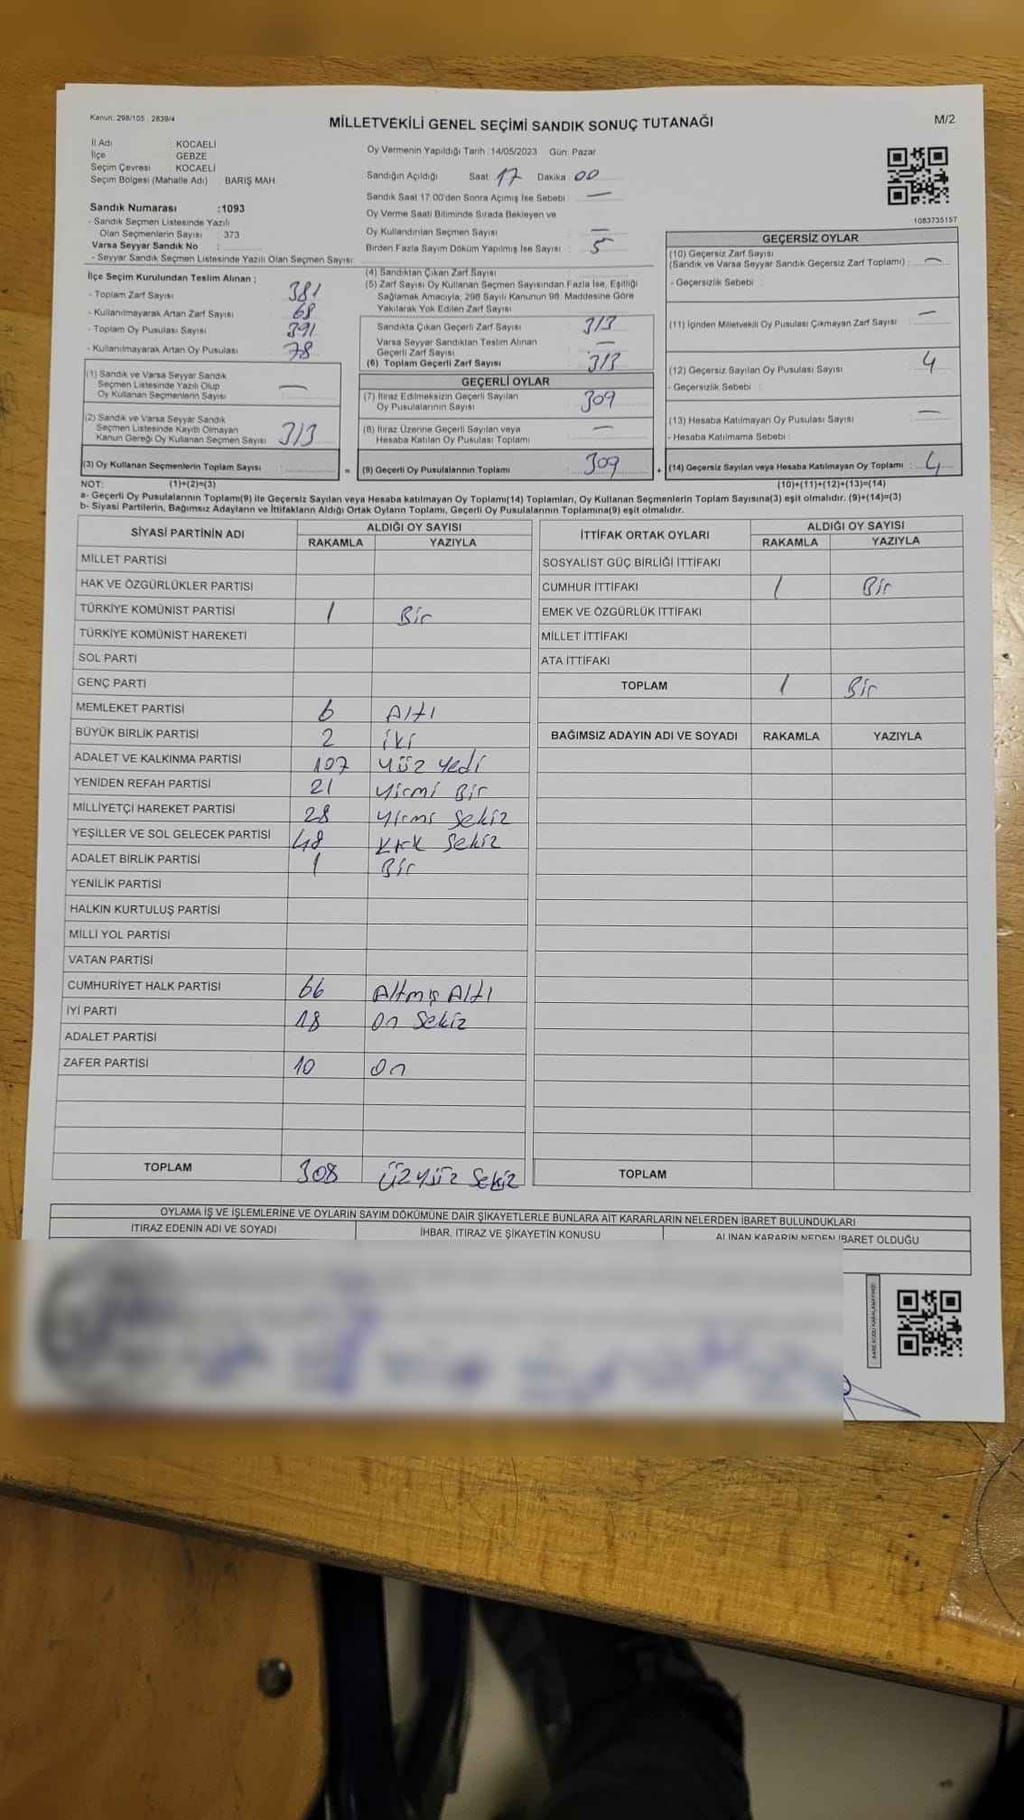 Kanun: 298/105 : 2839/4
MİLLETVEKİLİ GENEL SEÇİMİ SANDIK SONUÇ TUTANAĞI
M/2
İl Adı : KOCAELİ
İlçe : GEBZE
Seçim Çevresi : KOCAELİ
Seçim Bölgesi (Mahalle Adı) BARIŞ MAH.
Sandık Numarası :1093
- Sandık Seçmen Listesinde Yazılı
Olan Seçmenlerin Sayısı : 373
Varsa Seyyar Sandık No :
- Seyyar Sandık Seçmen Listesinde Yazılı Olan Seçmen Sayısı:
Oy Vermenin Yapıldığı Tarih :14/05/2023 Gün: Pazar
Sandığın Açıldığı Saat: 17 Dakika: 00
Sandık Saat 17.00'den Sonra Açımış İse Sebebi : —
Oy Verme Saati Bitiminde Sırada Bekleyen ve
Oy Kullandırılan Seçmen Sayısı : —
Birden Fazla Sayım Döküm Yapılmış İse Sayısı : 5
1083735157
İlçe Seçim Kurulundan Teslim Alınan :
- Toplam Zarf Sayısı : 381
- Kullanılmayarak Artan Zarf Sayısı : 68
- Toplam Oy Pusulası Sayısı : 391
- Kullanılmayarak Artan Oy Pusulası : 78
(1) Sandık ve Varsa Seyyar Sandık
Seçmen Listesinde Yazılı Olup
Oy Kullanan Seçmenlerin Sayısı : —
(2) Sandık ve Varsa Seyyar Sandık
Seçmen Listesinde Kayıtlı Olmayan
Kanun Gereği Oy Kullanan Seçmen Sayısı : 313
(3) Oy Kullanan Seçmenlerin Toplam Sayısı :
(4) Sandıktan Çıkan Zarf Sayısı :
(5) Zarf Sayısı Oy Kullanan Seçmen Sayısından Fazla İse, Eşitliği
Sağlamak Amacıyla, 298 Sayılı Kanunun 98. Maddesine Göre
Yakılarak Yok Edilen Zarf Sayısı :
Sandıkta Çıkan Geçerli Zarf Sayısı : 313
Varsa Seyyar Sandıktan Teslim Alınan
Geçerli Zarf Sayısı : —
(6) Toplam Geçerli Zarf Sayısı : 313
GEÇERLİ OYLAR
(7) İtiraz Edilmeksizin Geçerli Sayılan
Oy Pusulalarının Sayısı : 309
(8) İtiraz Üzerine Geçerli Sayılan veya
Hesaba Katılan Oy Pusulası Toplamı : —
= (9) Geçerli Oy Pusulalarının Toplamı : 309
GEÇERSİZ OYLAR
(10) Geçersiz Zarf Sayısı
(Sandık ve Varsa Seyyar Sandık Geçersiz Zarf Toplamı) : —
- Geçersizlik Sebebi :
(11) İçinden Milletvekili Oy Pusulası Çıkmayan Zarf Sayısı : —
(12) Geçersiz Sayılan Oy Pusulası Sayısı : 4
- Geçersizlik Sebebi :
(13) Hesaba Katılmayan Oy Pusulası Sayısı : —
- Hesaba Katılmama Sebebi :
+ (14) Geçersiz Sayılan veya Hesaba Katılmayan Oy Toplamı : 4
NOT: (1)+(2)=(3) (10)+(11)+(12)+(13)=(14)
a- Geçerli Oy Pusulalarının Toplamı(9) ile Geçersiz Sayılan veya Hesaba katılmayan Oy Toplamı(14) Toplamları, Oy Kullanan Seçmenlerin Toplam Sayısına(3) eşit olmalıdır. (9)+(14)=(3)
b- Siyasi Partilerin, Bağımsız Adayların ve İttifakların Aldığı Ortak Oyların Toplamı, Geçerli Oy Pusulalarının Toplamına(9) eşit olmalıdır.
SİYASİ PARTİNİN ADI ALDIĞI OY SAYISI
RAKAMLA YAZIYLA
MİLLET PARTİSİ
HAK VE ÖZGÜRLÜKLER PARTİSİ
TÜRKİYE KOMÜNİST PARTİSİ 1 Bir
TÜRKİYE KOMÜNİST HAREKETİ
SOL PARTİ
GENÇ PARTİ
MEMLEKET PARTİSİ 6 Altı
BÜYÜK BİRLİK PARTİSİ 2 iki
ADALET VE KALKINMA PARTİSİ 107 Yüz Yedi
YENİDEN REFAH PARTİSİ 21 Yirmi Bir
MİLLİYETÇİ HAREKET PARTİSİ 28 Yirmi Sekiz
YEŞİLLER VE SOL GELECEK PARTİSİ 48 Kırk Sekiz
ADALET BİRLİK PARTİSİ 1 Bir
YENİLİK PARTİSİ
HALKIN KURTULUŞ PARTİSİ
MİLLİ YOL PARTİSİ
VATAN PARTİSİ
CUMHURİYET HALK PARTİSİ 66 Altmış Altı
İYİ PARTİ 18 On Sekiz
ADALET PARTİSİ
ZAFER PARTİSİ 10 On
TOPLAM 308 ÜzYüz Sekiz
İTTİFAK ORTAK OYLARI ALDIĞI OY SAYISI
RAKAMLA YAZIYLA
SOSYALİST GÜÇ BİRLİĞİ İTTİFAKI
CUMHUR İTTİFAKI 1 Bir
EMEK VE ÖZGÜRLÜK İTTİFAKI
MİLLET İTTİFAKI
ATA İTTİFAKI
TOPLAM 1 Bir
BAĞIMSIZ ADAYIN ADI VE SOYADI RAKAMLA YAZIYLA
TOPLAM
OYLAMA İŞ VE İŞLEMLERİNE VE OYLARIN SAYIM DÖKÜMÜNE DAİR ŞİKAYETLERLE BUNLARA AİT KARARLARIN NELERDEN İBARET BULUNDUKLARI
İTİRAZ EDENİN ADI VE SOYADI İHBAR, İTİRAZ VE ŞİKAYETİN KONUSU ALINAN KARARIN NEDEN İBARET OLDUĞU